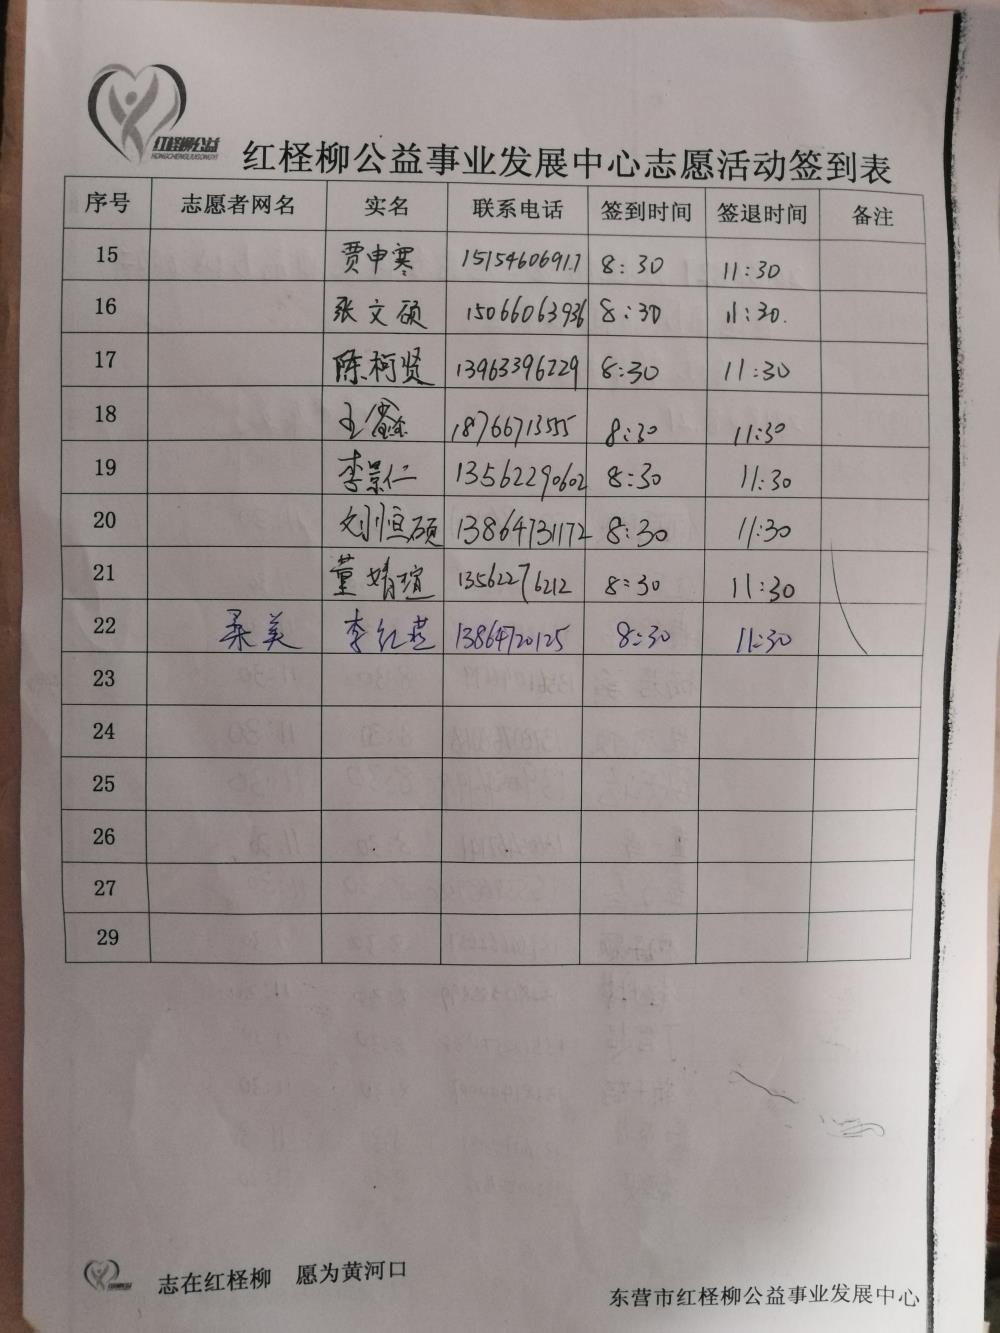 红柽柳公益
HONGCHENGLIUGONGYI
红柽柳公益事业发展中心志愿活动签到表
序号 志愿者网名 实名 联系电话 签到时间 签退时间 备注
15 贾申寒 15154606917 8:30 11:30
16 张文硕 15066063936 8:30 11:30.
17 陈柯贤 13963396229 8:30 11:30
18 王鑫 18766713555 8:30 11:30
19 李景仁 13562290602 8:30 11:30
20 刘恒硕 13864731172 8:30 11:30
21 董婧瑄 13562276212 8:30 11:30
22 柔美 李红燕 13864720125 8:30 11:30
23
24
25
26
27
29
志在红柽柳 愿为黄河口
东营市红柽柳公益事业发展中心